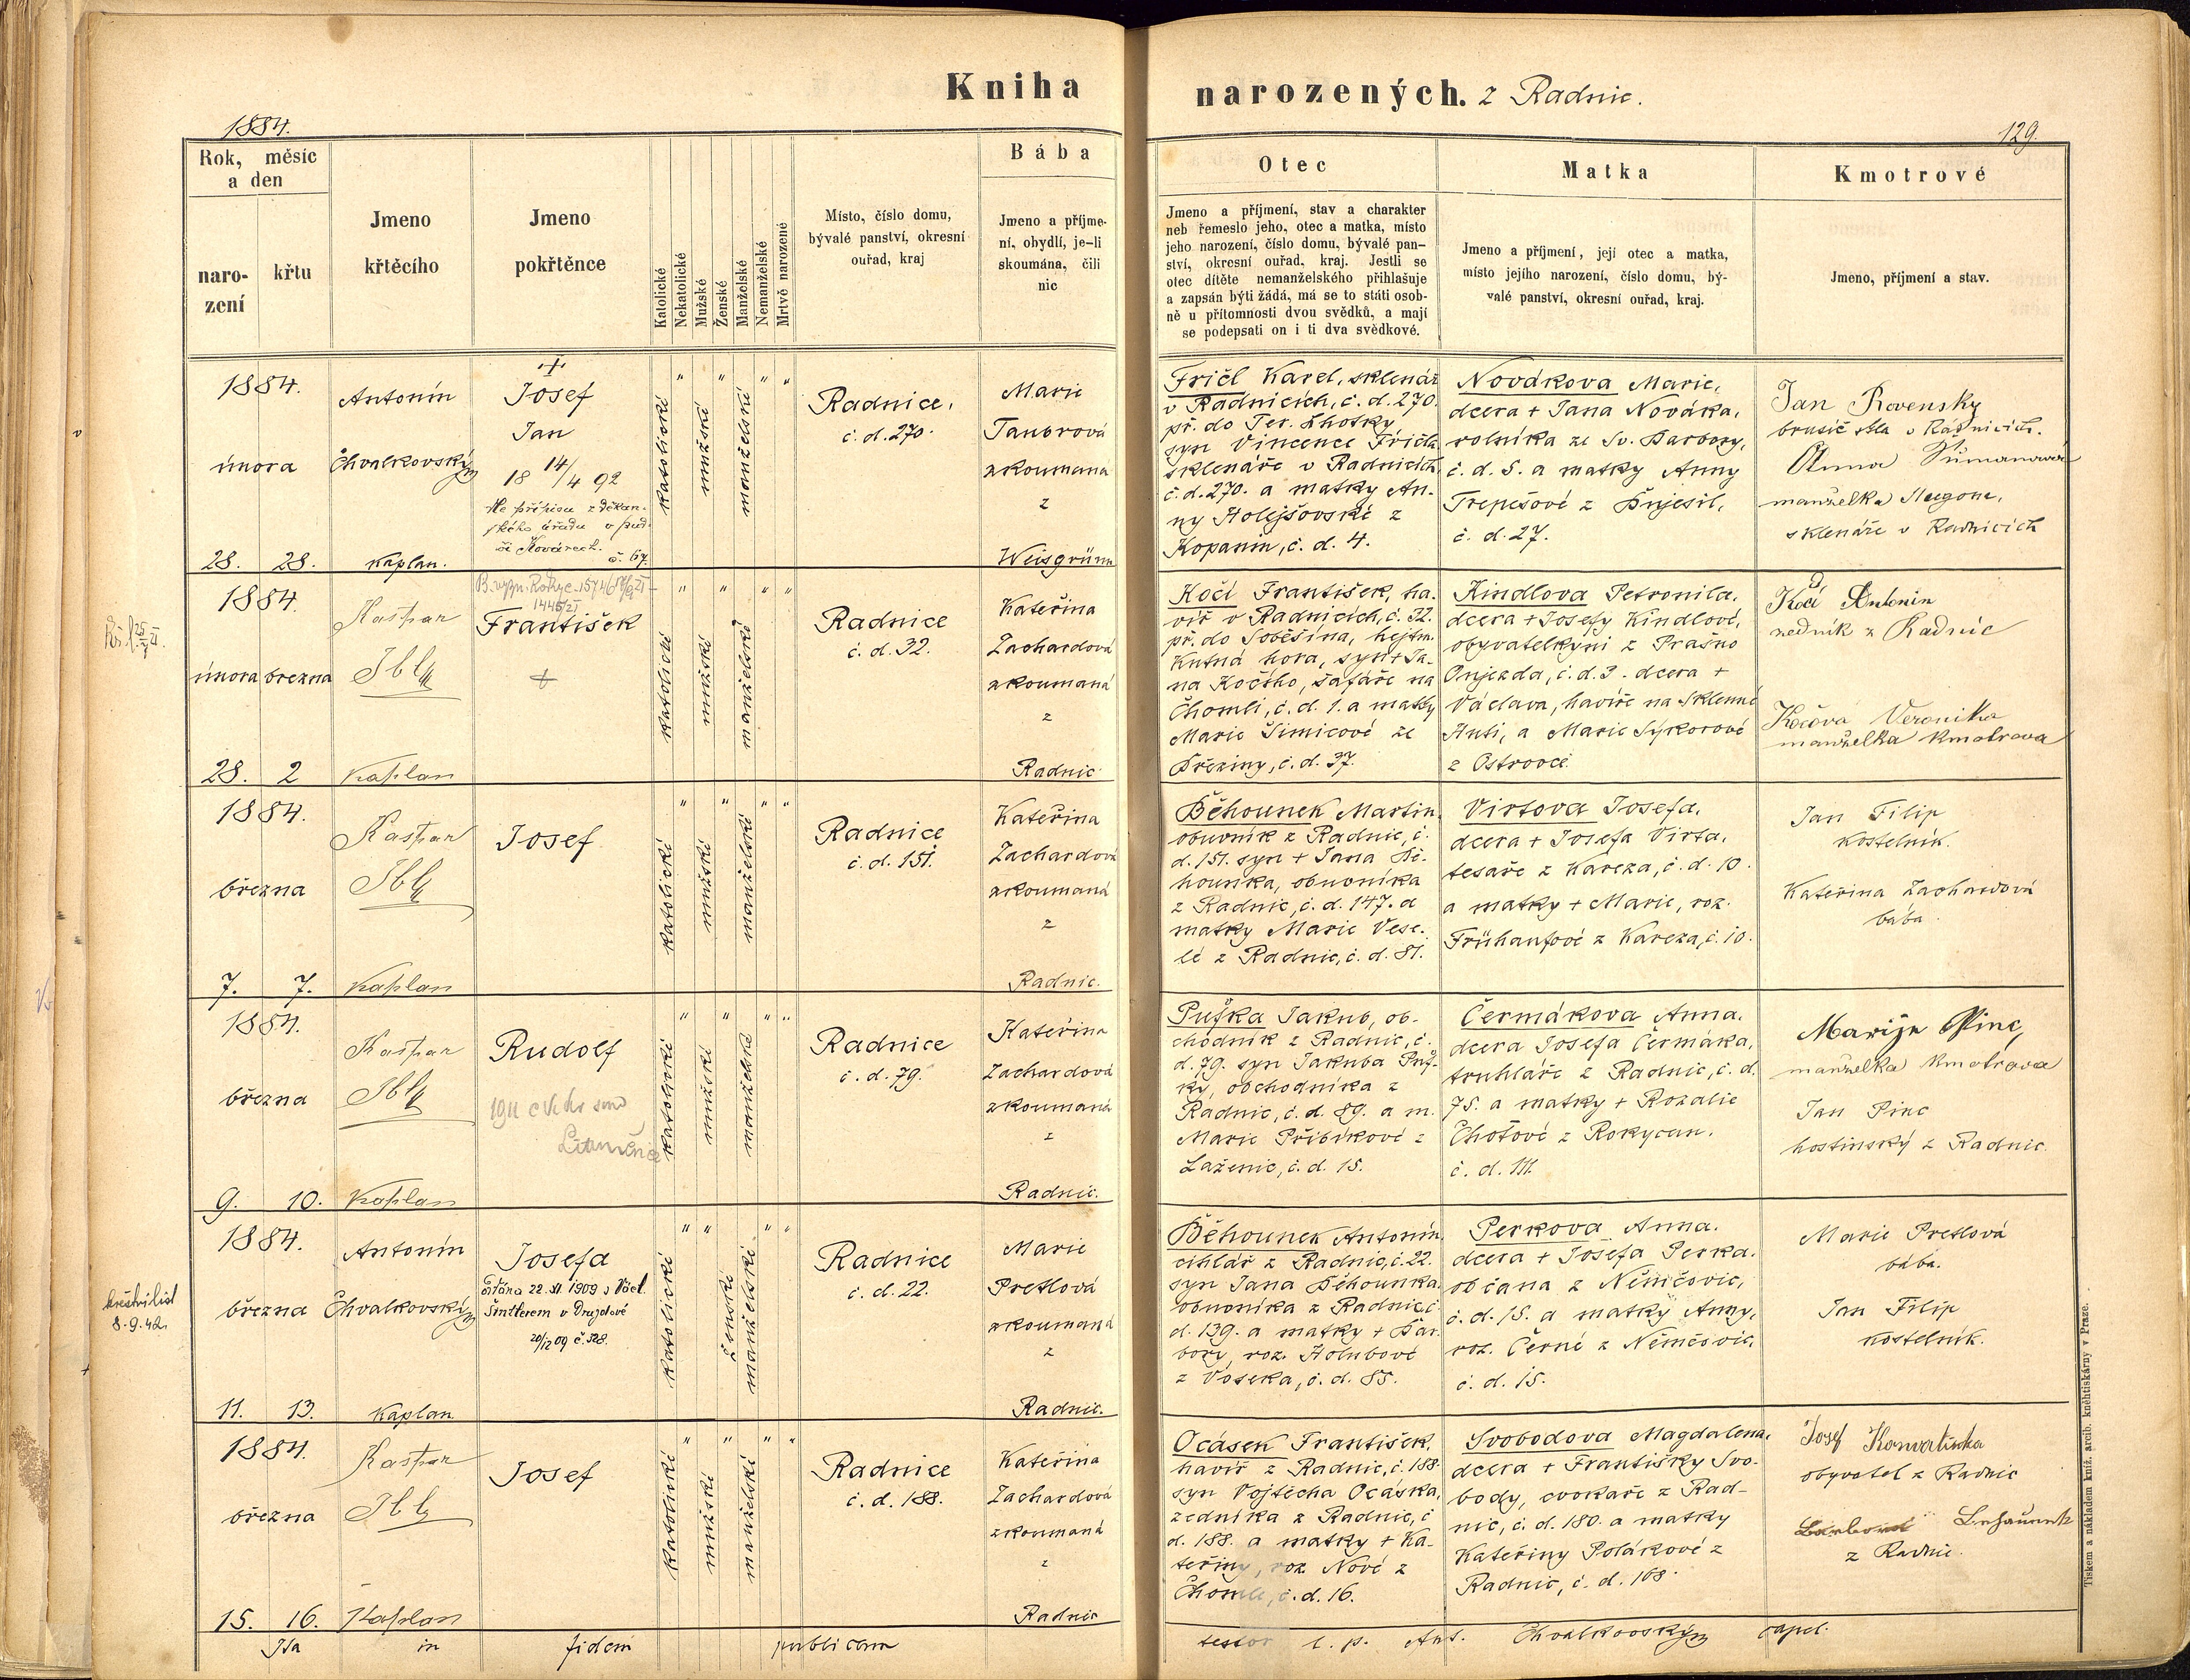 Kniha
narozených. z Radnic.
1884.
129.
Rok, měsíc
a den
naro-
zení
křtu
Jmeno
křtěcího
Jmeno
pokřtěnce
Katolické
Nekatolické
Mužské
Ženské
Manželské
Nemanželské
Mrtvě narozené
Místo, číslo domu,
bývalé panství, okresní
ouřad, kraj
Bába
Jmeno a příjme-
ní, obydlí, je-li
skoumána, čili
nic
Otec
Jmeno a příjmení, stav a charakter
neb řemeslo jeho, otec a matka, místo
jeho narození, číslo domu, bývalé pan-
ství, okresní ouřad, kraj. Jestli se
otec dítěte nemanželského přihlašuje
a zapsán býti žádá, má se to státi osob-
ně u přítomnosti dvou svědků, a mají
se podepsati on i ti dva svědkové.
Matka
Jmeno a příjmení, její otec a matka,
místo jejího narození, číslo domu, bý-
valé panství, okresní ouřad, kraj.
Kmotrové
Jmeno, příjmení a stav.
1884.
února
28. 28.
Antonín
Chvalkovský
kaplan.
+
Josef
Jan
18 14/4 92
č. 67.
katolické
mužské
manželské
Radnice,
č. d. 270.
Marie
Taubrová
zkoumaná
z
Weisgrünu
Fričl Karel, sklenář
v Radnicích, č. d. 270.
př. do Ter. Lhotky,
syn Vincence Fričla
sklenáře v Radnicích
č. d. 270. a matky An-
ny Holejšovské z
Kopanin, č. d. 4.
Novákova Marie,
dcera + Jana Nováka,
rolníka ze Sv. Barbory,
č. d. 5. a matky Anny
Trepešové z Bujesil,
č. d. 27.
Jan Rovensky
brusič skla v Radnicích.
Anna
manželka
sklenáře v Radnicích
1884.
února března
28. 2
Kašpar
Ibl
kaplan
František
+
katolické
mužské
manželské
Radnice
č. d. 32.
Kateřina
Zachardová
zkoumaná
z
Radnic
Kočí František, ha-
víř v Radnicích, č. 32.
př. do Soběšína, hejtm.
Kutná hora, syn + Ja-
na Kočího, šafáře na
Chomli, č. d. 1. a matky
Marie Šimicové ze
Březiny, č. d. 37.
Kindlova Petronila,
dcera + Josefy Kindlové,
obyvatelkyni z Prašno
Oujezda, č. d. 3. dcera +
Václava, havíře na Sklenné
Huti, a Marie Sýkorové
z Ostrovce
Kočí Antonin
zedník z Radnic
Kočová Veronika
manželka kmotrova
1884.
března
7. 7.
Kašpar
Ibl
kaplan
Josef
katolické
mužské
manželské
Radnice
č. d. 151.
Kateřina
Zachardová
zkoumaná
z
Radnic.
Běhounek Martin
obuvník z Radnic, č.
d. 151. syn + Jana Bě-
hounka, obuvníka
z Radnic, č. d. 147. a
matky Marie Vese-
lé z Radnic, č. d. 81.
Virtova Josefa,
dcera + Josefa Virta,
tesaře z Kareza, č. d. 10.
a matky + Marie, roz.
Frühaufové z Kareza, č. 10.
Jan Filip
kostelník.
Kateřina Zachardová
bába.
1884.
března
9. 10.
Kašpar
Ibl
kaplan
Rudolf
1911
katolické
mužské
manželské
Radnice
č. d. 79.
Kateřina
Zachardová
zkoumaná
z
Radnic.
Pufka Jakub, ob-
chodník z Radnic, č.
d. 79. syn Jakuba Puf-
ky, obchodníka z
Radnic, č. d. 89. a m.
Marie Přibíkové z
Laženic, č. d. 15.
Čermákova Anna.
dcera Josefa Čermáka,
truhláře z Radnic, č. d.
75. a matky + Rozalie
Chotové z Rokycan.
č. d. 111.
Marije Pinc,
manželka kmotrova
Jan Pinc
hostinský z Radnic
1884.
března
11. 13.
Antonín
Chvalkovský
kaplan
Josefa
20/12 09 č. 528.
katolické
ženské
manželské
Radnice
č. d. 22.
Marie
Pretlová
zkoumaná
z
Radnic.
Běhounek Antonín
cihlář z Radnic, č. 22.
syn Jana Běhounka
obuvníka z Radnic, č.
d. 139. a matky + Bar-
bory, roz. Holubové
z Voseka, č. d. 85.
Perkova Anna.
dcera + Josefa Perka.
občana z Němčovic,
č. d. 15. a matky Anny,
roz. Černé z Němčovic,
č. d. 15.
Marie Pretlová
bába.
Jan Filip
kostelník.
křestní list
8.9.42.
1884.
března
15. 16.
Kašpar
Ibl
kaplan
Josef
katolické
mužské
manželské
Radnice
č. d. 188.
Kateřina
Zachardová
zkoumaná
z
Radnic
Ocásek František,
havíř z Radnic, č. 188.
syn Vojtěcha Ocáska,
zedníka z Radnic, č
d. 188. a matky + Ka-
teřiny, roz. Nové z
Chomle, č. d. 16.
Svobodova Magdalena,
dcera + Františky Svo-
body, cvokaře z Rad-
nic, č. d. 180. a matky
Kateřiny Polákové z
Radnic, č. d. 168.
Josef
obyvatel z Radnic
z Radnic.
Ita in fidem publicam testor l. p. Ant. Chvalkovský capel.
Tiskem a nákladem kníž. arcib. kněhtiskárny v Praze.